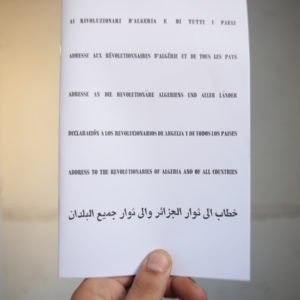 AI RIVOLUZIONARI D'ALGERIA E DI TUTTI I PAESI
ADRESSE AUX RÉVOLUTIONNAIRES D'ALGÉRIE ET DE TOUS LES PAYS
ADRESSE AN DIE REVOLUTIONÄRE ALGERIENS UND ALLER LÄNDER
DECLARACIÓN A LOS REVOLUCIONARIOS DE ARGELIA Y DE TODOS LOS PAISES
ADDRESS TO THE REVOLUTIONARIES OF ALGERIA AND OF ALL COUNTRIES
خطاب الى ثوار الجزائر والى ثوار جميع البلدان